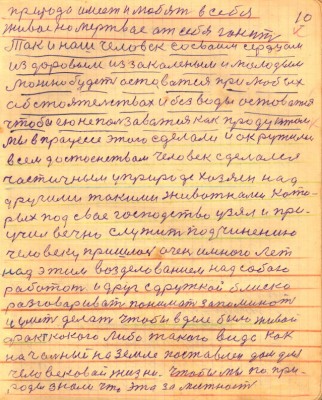 природе имеет и любят в себя
10
живое но мертвае от себя гонят
Так и наш человек со своим сердцем
из доровым из закаленным и молодым
можно будет астоватся при любых
обстоятельствах и без воды астоватся
чтобы ею не ползаватся как продуктом
мы в працесе этого сделали и окружили
всем достоенством человек сделался
частичным у природе хазяен над
другими такими животнами кото-
рых под свае господство узял и при-
учил вечно служит подчинению
человеку, пришлос очен много лет
над этим возделованием над собою
работат и друг с дружкой блиско
разговариват понимат запоминат
и умет делат чтобы в деле был живой
факт какого либо такого вида как
началный на земле поставлен дом для
человековай жизни. Чтобы мы по при-
роды знали что это за местност